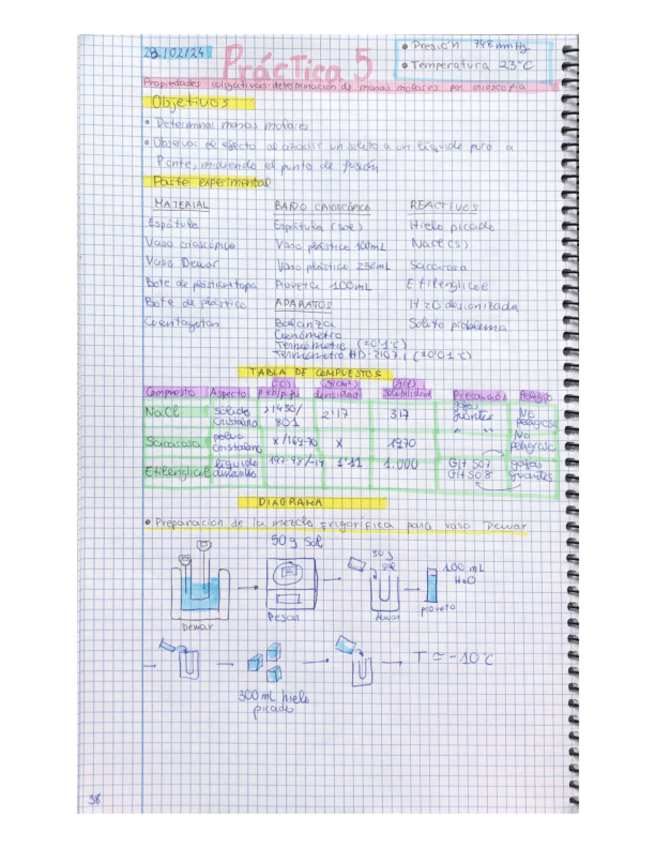 28/02/24
Práctica 5
• Presión 748 mmHg
• Temperatura 23°C
Propiedades coligativas: determinación de masas molares por crioscopia
Objetivos
• Determinar masas molares
• Observar el efecto al añadir un soluto a un líquido puro a
P cnte, midiendo el punto de fusión
Parte experimental
MATERIAL
Espátula
Vaso crioscópico
Vaso Dewar
Bote de plástico + tapa
Bote de plástico
Cuentagotas
BAÑO CRIOSCÓPICO
Espátula (sal)
Vaso plástico 100mL
Vaso plástico 250mL
Probeta 100mL
APARATOS
Balanza
Cronómetro
Termómetro (±0'1°C)
Termómetro HD-2107.1 (±0'01°C)
REACTIVOS
Hielo picado
NaCl (s)
Sacarosa
Etilenglicol
H2O desionizada
Soluto problema
TABLA DE COMPUESTOS
Compuesto Aspecto (°C) p.eb/p.f (g/cm³) densidad (g/L) solubilidad Precaución Peligro
NaCl sólido cristalino >1450/801 2'17 317 gafas guantes No peligroso
Sacarosa polvo cristalino x/169-70 x 1970 " " No peligroso
Etilenglicol líquido 197-98/-14 1'11 1.000 GHS07 GHS08 gafas guantes
DIAGRAMA
• Preparación de la mezcla frigorífica para vaso Dewar
50 g sal
50 g
sal
100 mL
H2O
Dewar
Pesar
Dewar
probeta
T = -10°C
300 mL hielo
picado
38